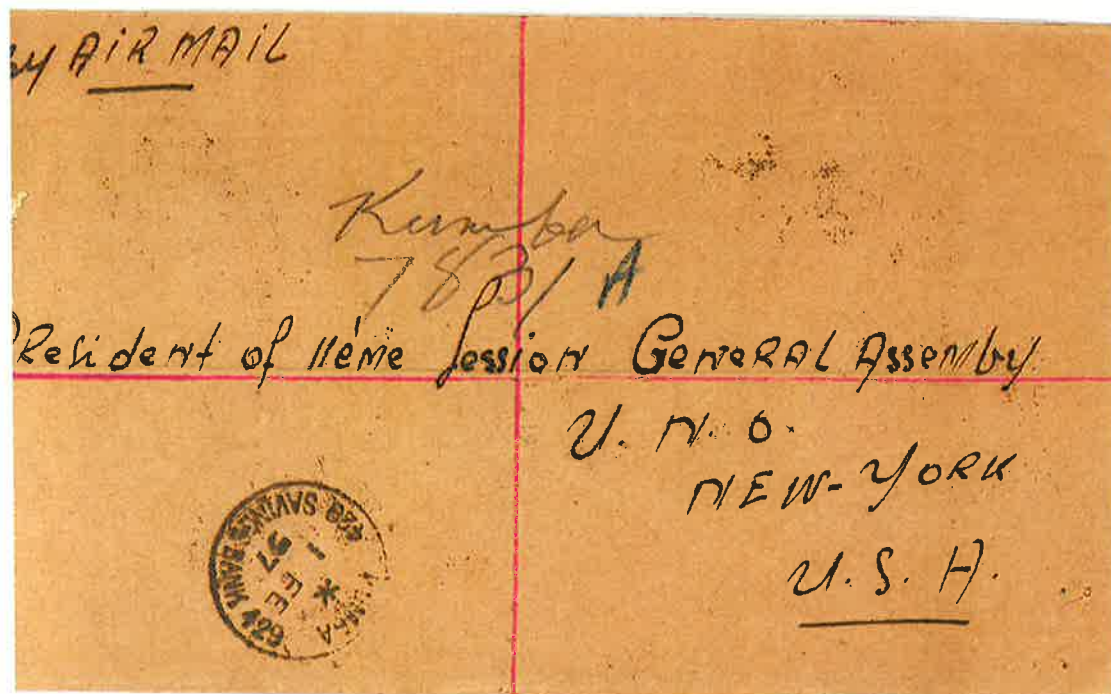 By AiR MAiL
Kumba
7831 A
PResident of 11ème Session GeneRAL Assembly.
U. N. O.
NEW-YORK
U. S. A.
429 SAVINGS BANK 429
KUMBA
*
1 FE
57